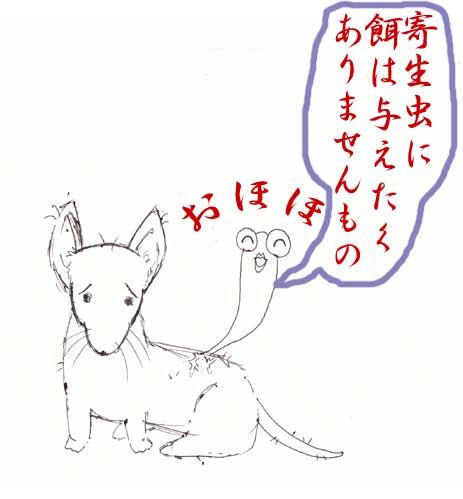 寄生虫に
餌は与えたく
ありませんもの
おほほ